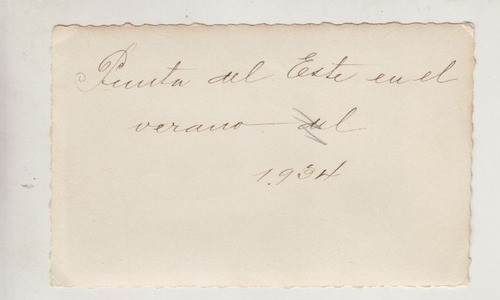 Punta del Este en el
verano del
1.934